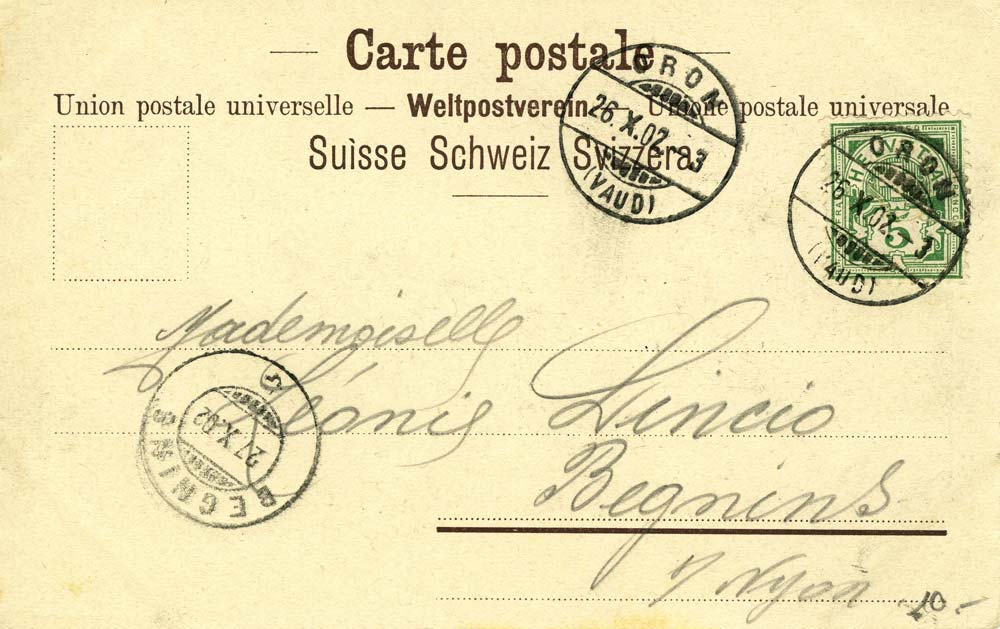 Carte postale
Union postale universelle — Weltpostverein. — Unione postale universale
Suisse Schweiz Svizzera
ORON
26.X.02.-3
(VAUD)
ORON
26.X.02.-3
(VAUD)
HELVETIA
FRANCO
5
Mademoiselle
Léonie Lincio
Begnins
s/ Nyon
BEGNINS
27.X.02
10.-